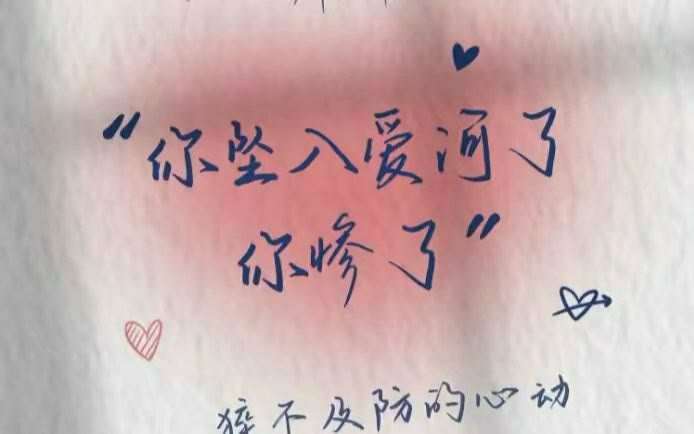 “你坠入爱河了
你惨了”
猝不及防的心动